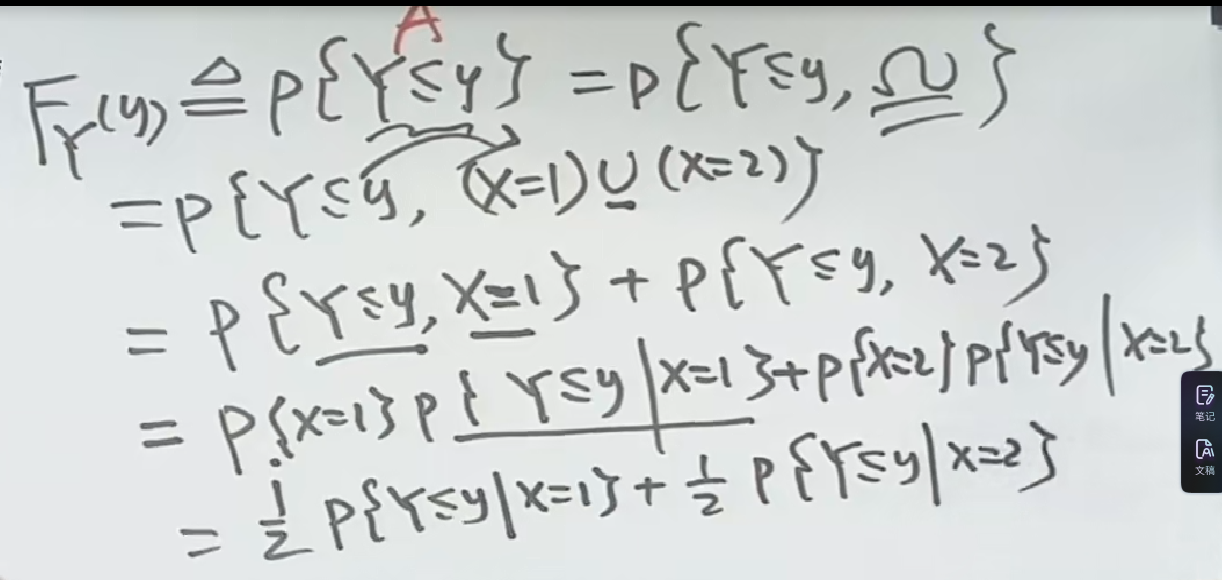 A
F_Y(y) ≜ P{Y≤y} = P{Y≤y, Ω}
= P{Y≤y, (X=1)∪(X=2)}
= P{Y≤y, X=1} + P{Y≤y, X=2}
= P{X=1}P{Y≤y|X=1}+P{X=2}P{Y≤y|X=2}
= 1/2 P{Y≤y|X=1}+ 1/2 P{Y≤y|X=2}
笔记
文稿